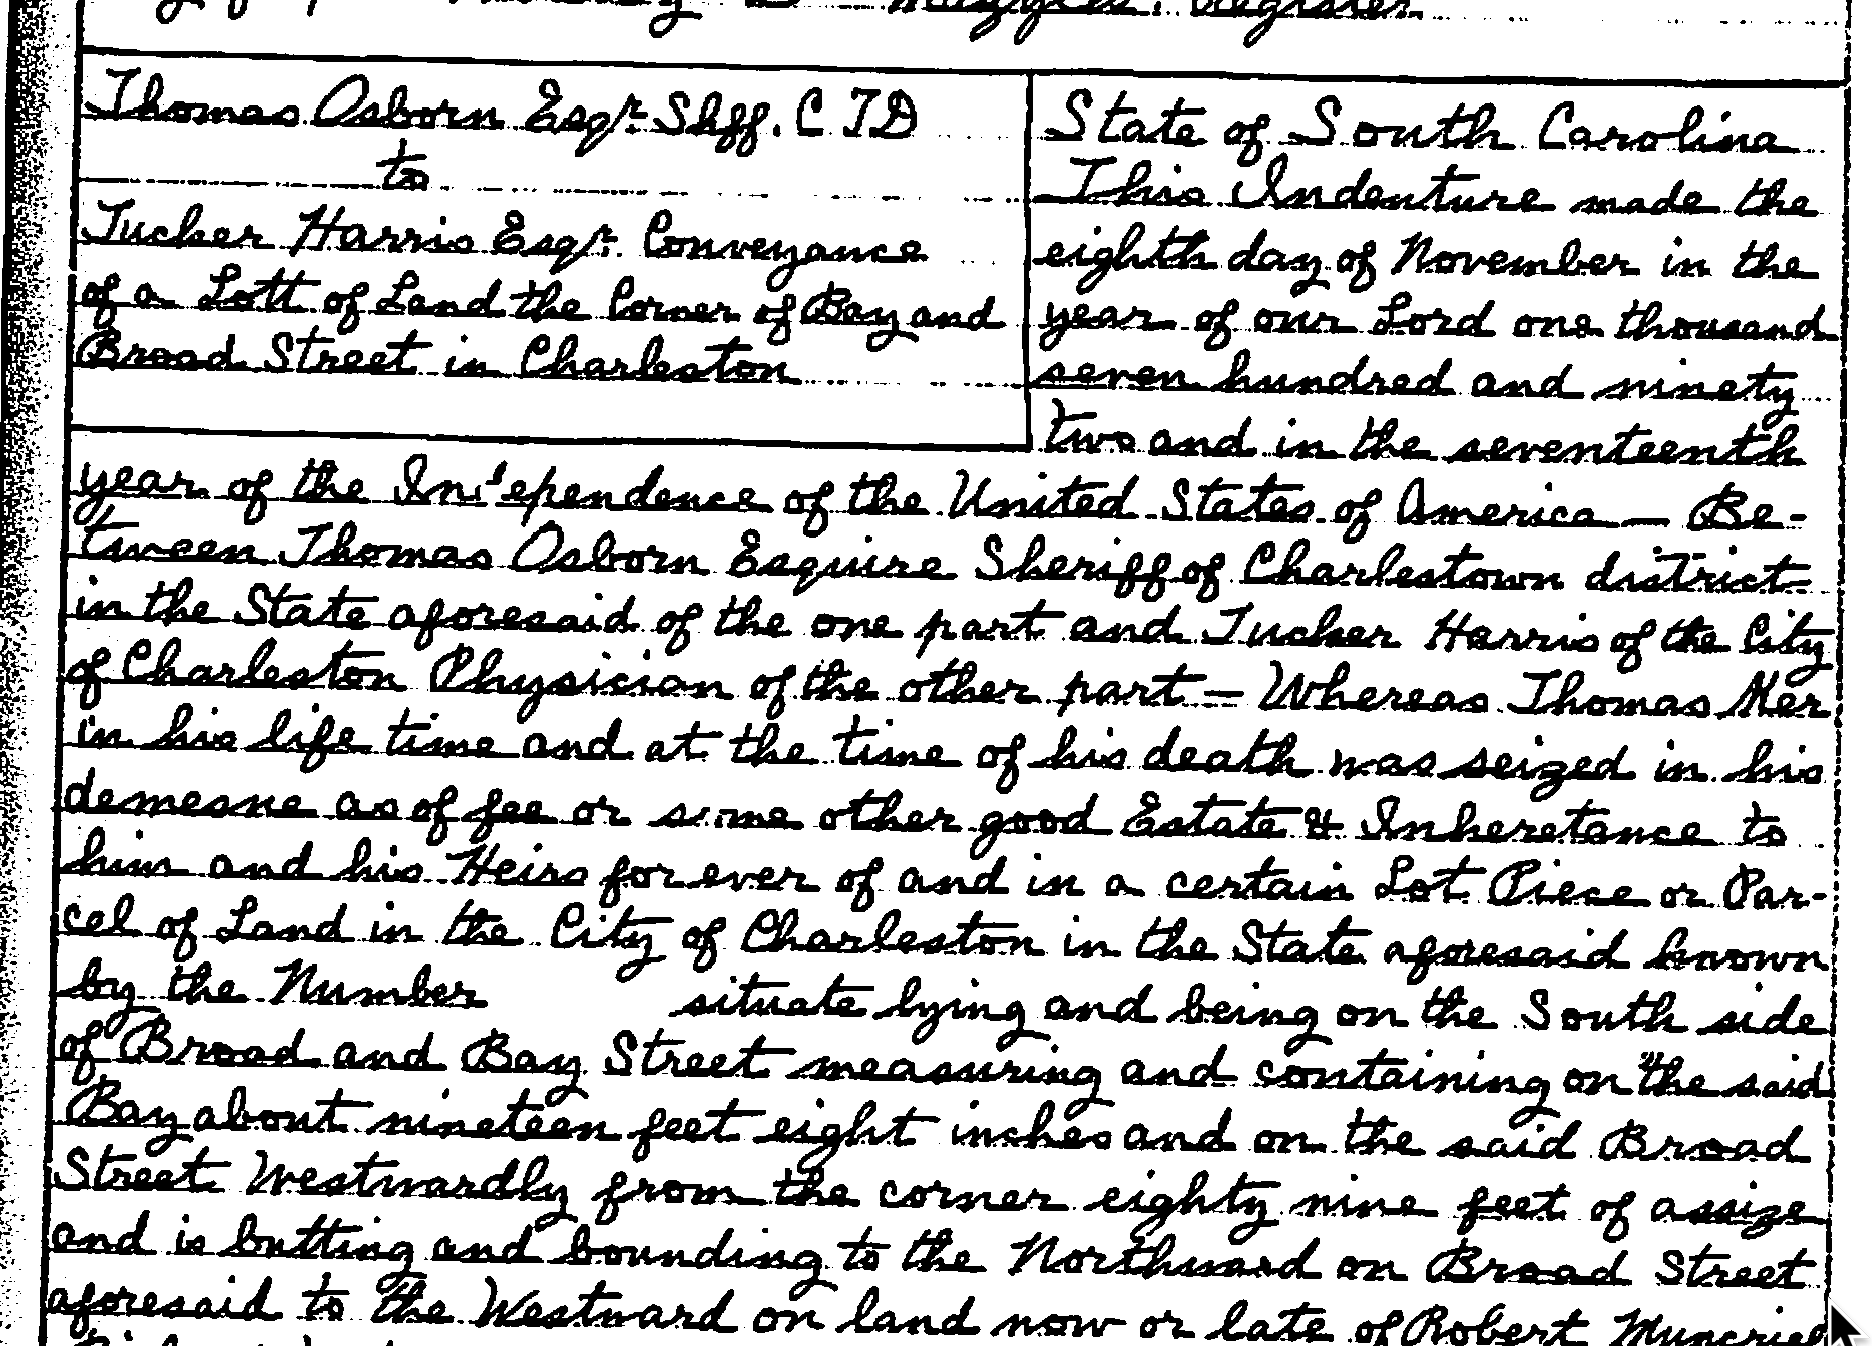 Register.
Thomas Osborn Esqr. Shff. C T D
to
Tucker Harris Esqr. Conveyance
of a Lott of Land the Corner of Bay and
Broad Street in Charleston
State of South Carolina
This Indenture made the
eighth day of November in the
year of our Lord one thousand
seven hundred and ninety
two and in the seventeenth
year of the Independence of the United States of America — Be-
tween Thomas Osborn Esquire Sheriff of Charlestown district
in the State aforesaid of the one part and Tucker Harris of the City
of Charleston Physician of the other part = Whereas Thomas Ker
in his life time and at the time of his death was seized in his
demesne as of fee or some other good Estate & Inheretance to
him and his Heirs for ever of and in a certain Lot Piece or Par-
cel of Land in the City of Charleston in the State aforesaid known
by the Number situate lying and being on the South side
of Broad and Bay Street measuring and containing on the said
Bay about nineteen feet eight inches and on the said Broad
Street Westwardly from the corner eighty nine feet of assize
and is butting and bounding to the Northward on Broad Street
aforesaid to the Westward on land now or late of Robert Muncrief